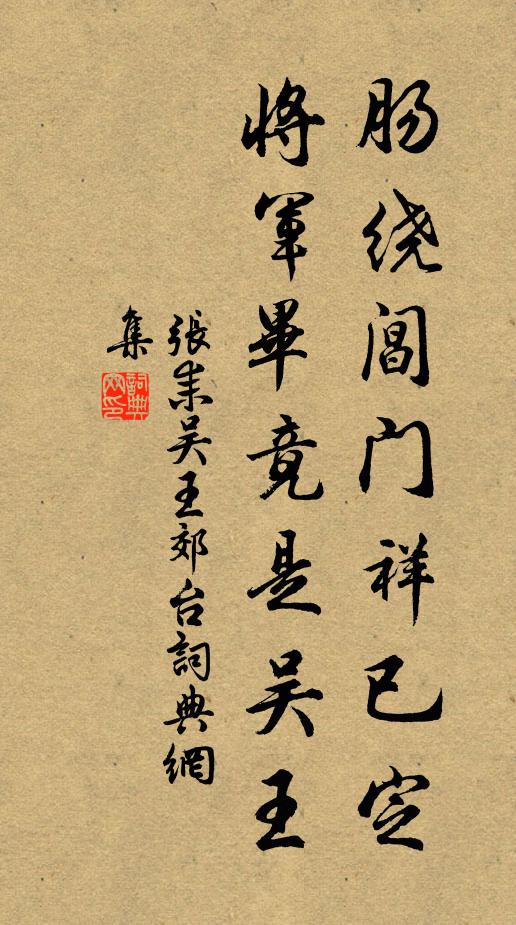 肠绕阊门祥已定
将军毕竟是吴王
張耒吴王郊台詞典網
集
詞典